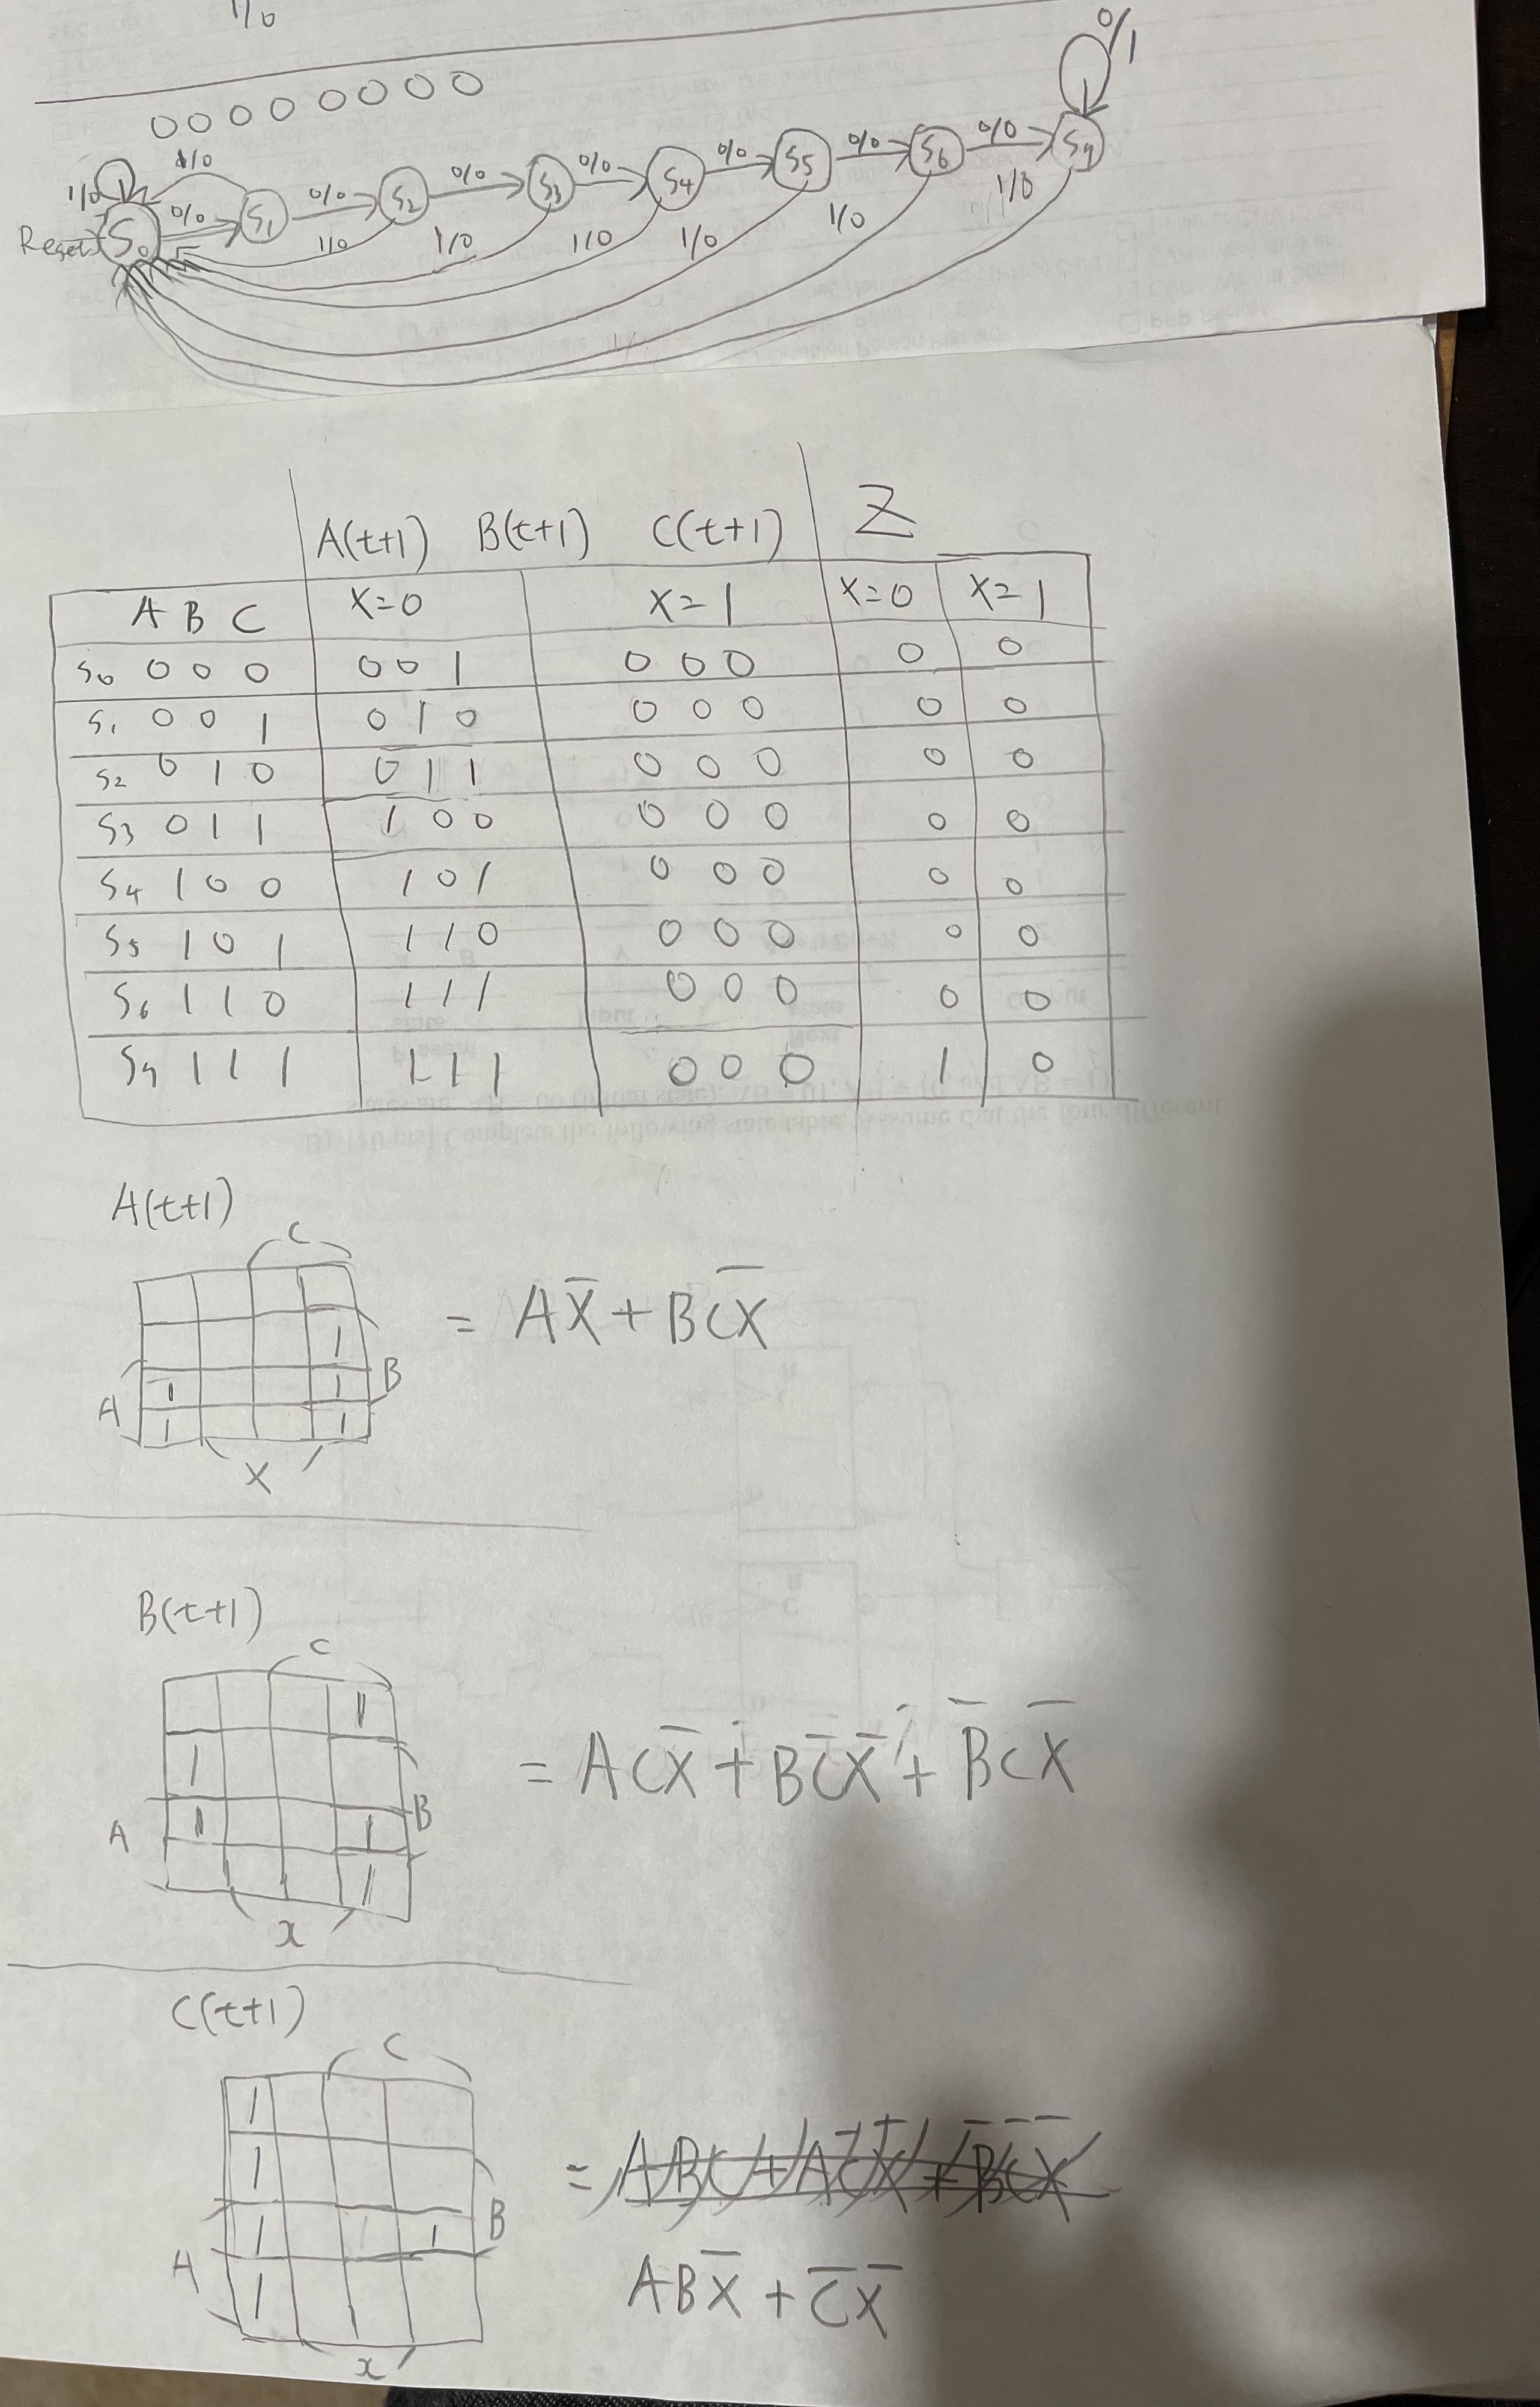 1/0
0 0 0 0 0 0 0 0
0/1
1/0 1/0 0/0 0/0 0/0 0/0 0/0 0/0 0/0
Reset S0 S1 S2 S3 S4 S5 S6 S7
1/0 1/0 1/0 1/0 1/0 1/0
A(t+1) B(t+1) C(t+1) Z
A B C X=0 X=1 X=0 X=1
S0 0 0 0 0 0 1 0 0 0 0 0
S1 0 0 1 0 1 0 0 0 0 0 0
S2 0 1 0 0 1 1 0 0 0 0 0
S3 0 1 1 1 0 0 0 0 0 0 0
S4 1 0 0 1 0 1 0 0 0 0 0
S5 1 0 1 1 1 0 0 0 0 0 0
S6 1 1 0 1 1 1 0 0 0 0 0
S7 1 1 1 1 1 1 0 0 0 1 0
A(t+1)
C
1
1 1
1 1
A B
X
= AX̅ + BCX̅
B(t+1)
C
1
1
1 1
1
A B
x
= ACX̅ + BC̅X̅ + B̅CX̅
C(t+1)
C
1
1
1 1
1
A B
x
=
ABX̅ + C̅X̅